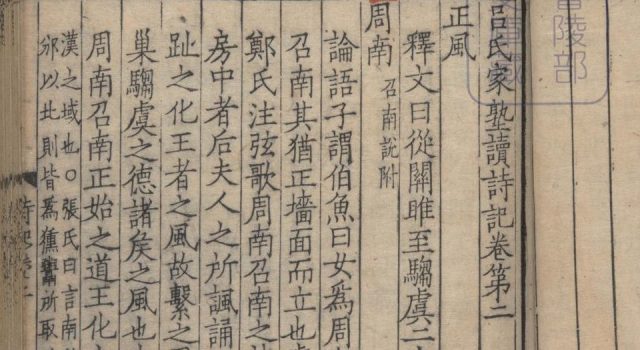 陵部
呂氏家塾讀詩記卷第二
正風
釋文曰從關雎至騶虞二
周南 召南說附
論語子謂伯魚曰女爲周
召南其猶正墻面而立也
鄭氏注弦歌周南召南之
房中者后夫人之所諷誦
趾之化王者之風故繫之
巢騶虞之德諸矦之風也
周南召南正始之道王化
漢之域也○張氏曰言南
邠以北則皆爲獯鬻所